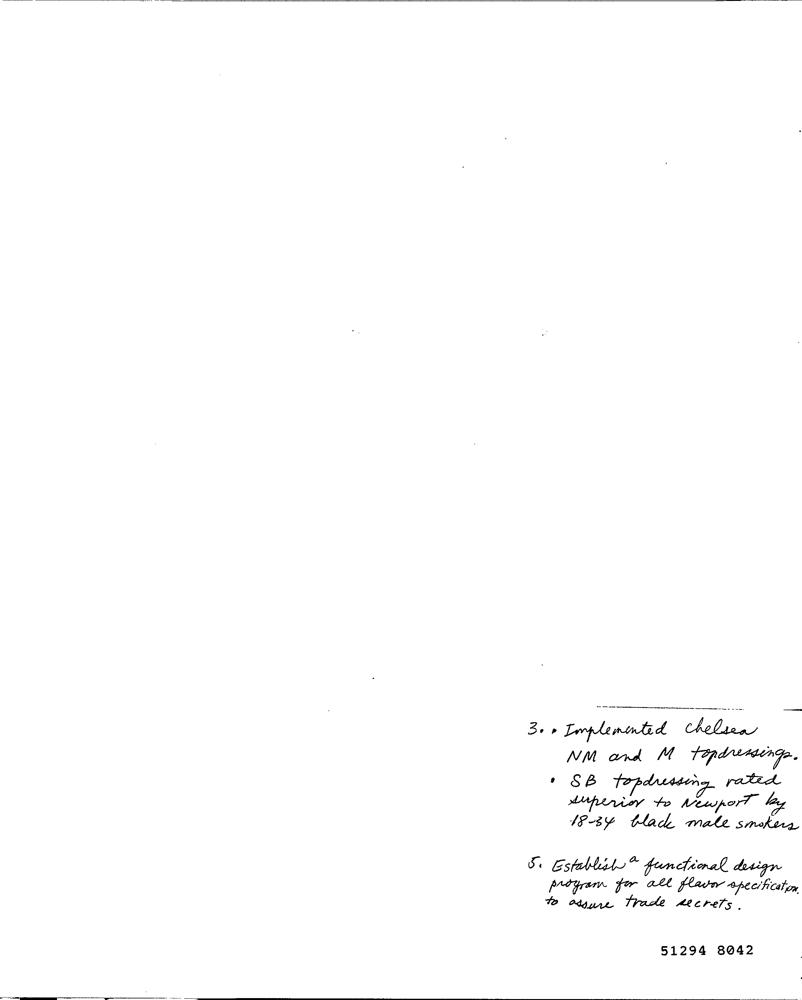 3. • Implemented Chelsea
NM and M topdressings.
• SB topdressing rated
superior to Newport by
18-34 black male smokers
5. Establish a functional design
program for all flavor specification
to assure trade secrets.
51294 8042